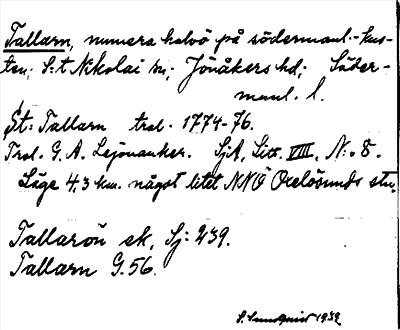 Tallarn, numera halvö på södermanl.-kus-
ten; S:t Nikolai sn; Jönåkers hd; Söder-
manl. l.
St: Tallarn trol. 1774-76.
Trol. G. A. Lejonanker. SjA, Litt. VIII, N:o 8.
Läge 4,3 km. något litet NNÖ Oxelösunds stn.
Tallarön ek, Sj: 239.
Tallarn G. 56.
S. Sundquist 1932